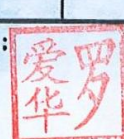 :
罗
爱华